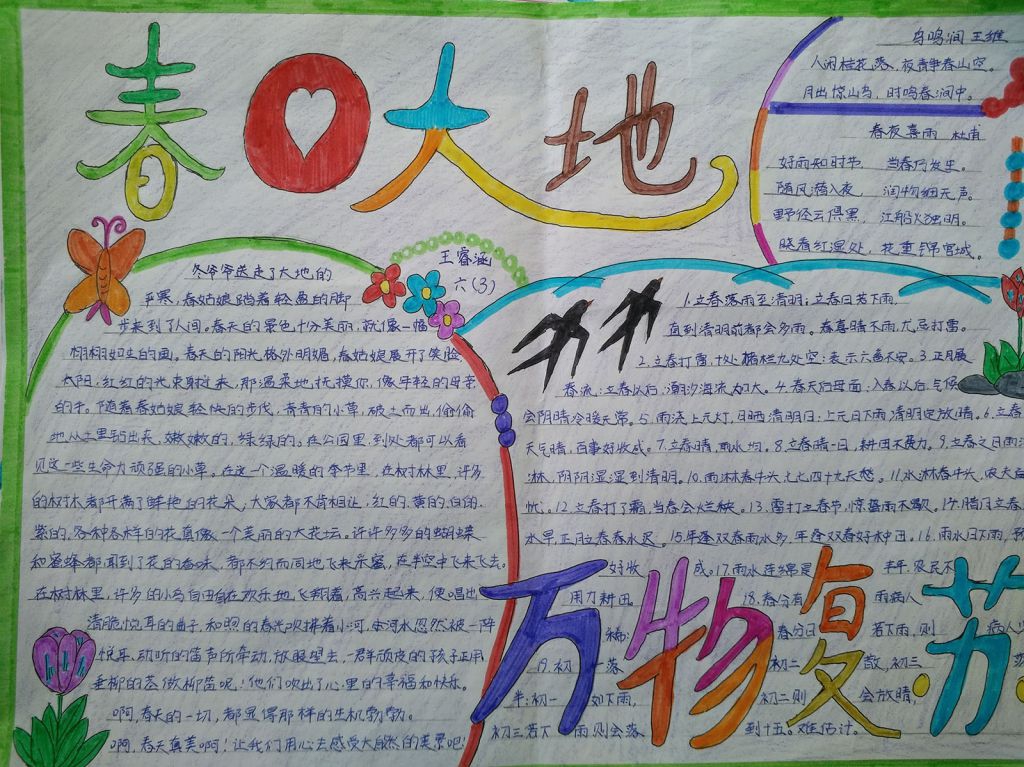 春回大地
鸟鸣涧 王维
人闲桂花落、夜静春山空。
月出惊山鸟，时鸣春涧中。
春夜喜雨 杜甫
好雨知时节， 当春乃发生。
随风潜入夜， 润物细无声。
野径云俱黑， 江船火独明。
晓看红湿处， 花重锦宫城。
王睿涵
六(3)
冬爷爷送走了大地的
平寒，春姑娘踏着轻盈的脚
步来到了人间。春天的景色十分美丽，就像一幅
栩栩如生的画。春天的阳光格外明媚，春姑娘展开了笑脸
太阳，红红的光束射过来，那温柔地抚摸你，像年轻的母亲
的手。随着春姑娘轻快的步伐，青青的小草，破土而出，偷偷
地从土里钻出来，嫩嫩的，绿绿的。在公园里，到处都可以看
见这一些生命力顽强的小草。在这一个温暖的季节里，在树林里，许多
的树木都开满了鲜艳的花朵，大家都不肯相让，红的、黄的、白的、
紫的，各种各样的花真像一个美丽的大花坛。许许多多的蝴蝶
和蜜蜂都闻到了花的香味，都不约而同地飞来采蜜，在半空中飞来飞去。
在树林里，许多的小鸟自由自在欢乐地飞翔着，高兴起来，便唱出
清脆悦耳的曲子，和煦的春光吹拂着小河，
悦耳、动听的笛声所牵动，放眼望去，一群顽皮的孩子正用
垂柳的茎做柳笛呢；他们吹出了心里的幸福和快乐。
啊，春天的一切，都显得那样的生机勃勃。
啊，春天真美啊！让我们用心去感受大自然的美景吧！
1.立春落雨至清明；立春日若下雨，
直到清明前都会多雨。春寒晴不雨，尤忌打雷。
2.立春打雷，十处猪栏九处空：表示六畜不安。3.正月展
春流：立春以后，潮汐海流为大。4.春天后母面：入春以后，气候
会阴晴冷暖无常。5.雨浇上元灯，日晒清明日：上元日下雨，清明定放晴。6.立春
天气晴，百事好收成。7.立春晴，雨水均。8.立春晴一日，耕田不费力。9.立春之日雨
淋，阴阴湿湿到清明。10.雨淋春牛头，七七四十九天愁。11.水淋春牛头，农夫
忧。12.立春打了霜，当春会烂秧。13.雷打立春节，惊蛰雨不歇。14.腊月立春
水早，正月立春春水迟。15.年逢双春雨水多，年逢双春好种田。16.雨水日下雨，
好收 成。17.雨水连绵是 丰年，农民不
用力耕田。 18.春分有 雨病人
稀： 春分日 若下雨，则 病人
19.初一落 初二 散，初三
半：初一 如下雨， 初二则 会放晴，
初三若下 雨则会落 到十五。难估计。
万物复苏